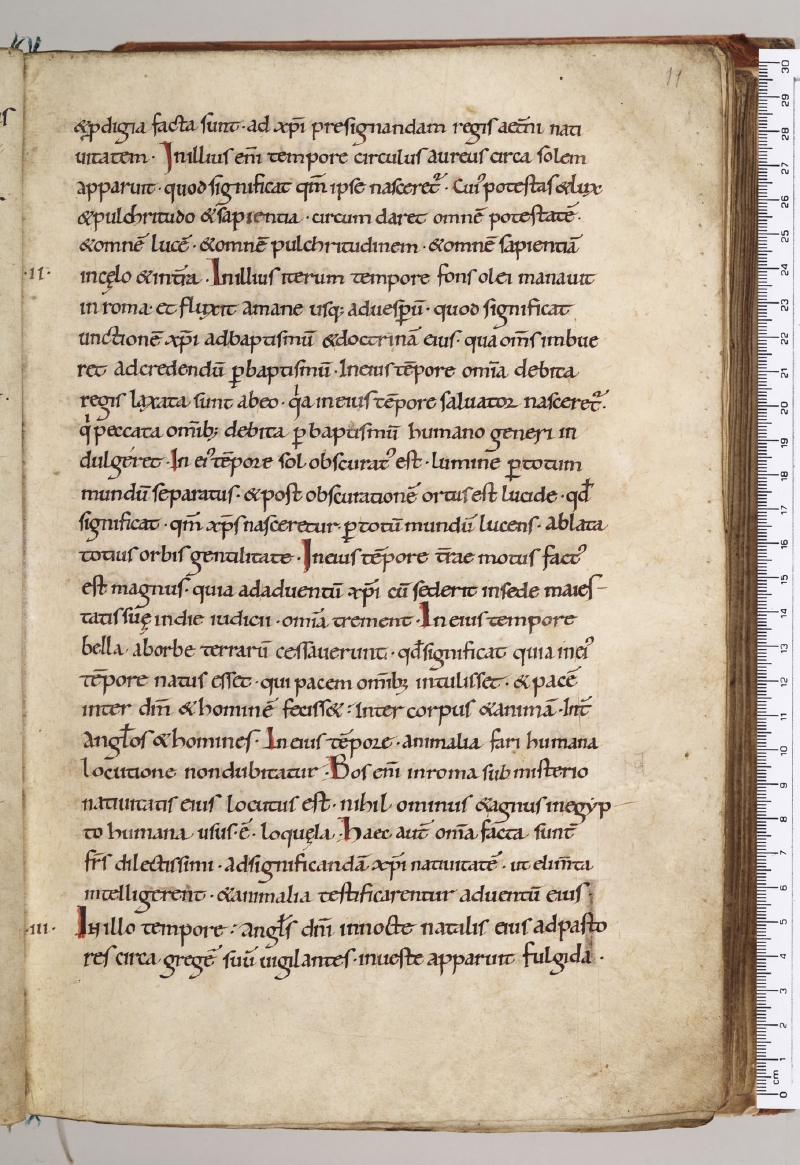 11
&ꝓdigia facta sunt · ad xp̄i presignandam regis aet̄ni nati
uitatem · Inillius em̄ tempore circulus aureus circa solem
apparuit · quod significat qm̄ ipse nasceret᷑ · Cuiꝰ potestas & lux
& pulchritudo & sapientia · circum daret omnē potestatē ·
& omnē lucē · & omnē pulchritudinem · & omnē sapientiā
·II· incęlo & int̄ra · Inillius iterum tempore fons olei manauit
in roma · et fluxit amane usq; aduesꝑū · quod significat
unctionē xp̄i adbaptismū & doctrinā eius · qua om̄s imbue
ret adcredendū ꝑ baptismū · Ineius tēpore om̄ia debita
regis laxata sunt abeo · qͥa ineius tēpore saluator nasceret᷑ ·
qͥ peccata om̄ib; debita ꝑ baptismū humano generi in
dulgeret · In eiꝰ tēpore sol obscuratꝰ est · lumine ꝑ totum
mundū separatus · & post obscurationē ortus est lucide · qđ
significat · qm̄ xp̄s nasceretur · ꝑ totū mundū lucens · ablata
totius orbis gentilitate · Ineius tēpore t̄rae motus factꝰ
est magnus · quia adaduentū xp̄i cū sederit insede maies
tatis suę indie iudicii · om̄ia trement · In eius tempore
bella aborbe terrarū cessauerunt · qđ significat quia ineiꝰ
tēpore natus esset · qui pacem om̄ib; intulisset · & pacē
inter dm̄ & hominē feciss& · Inter corpus & animā · Int̄
Angłos & homines · In eius tēpore · animalia fari humana
locutione nondubitatur · Bos em̄ inroma sub misterio
natiuitatis eius locutus est · nihil ominus & agnus inegyp
to humana usus · ē · loquęla · Haec aut̄ om̄a facta sunt
fr̄s dilectissimi · adsignificandā xp̄i natiuitatē · ut elim̄ta
intelligerent · & animalia testificarentur aduentū eius ·
·III· In illo tempore · Angłs dm̄ innocte natalis eius adpasto
res circa gregē suū uigilantes · inueste apparuit fulgida ·